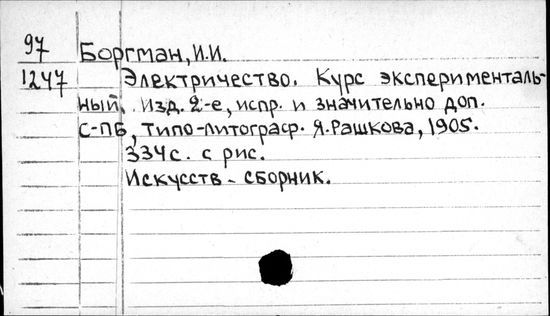 97 Боргман, И.И.
1247 Электричество. Курс эксперименталь-
ный. Изд. 2-е, испр. и значительно доп.
С-ПБ, Типо-литограф. Я.Рашкова, 1905.
334 с. с рис.
Искусств-сборник.